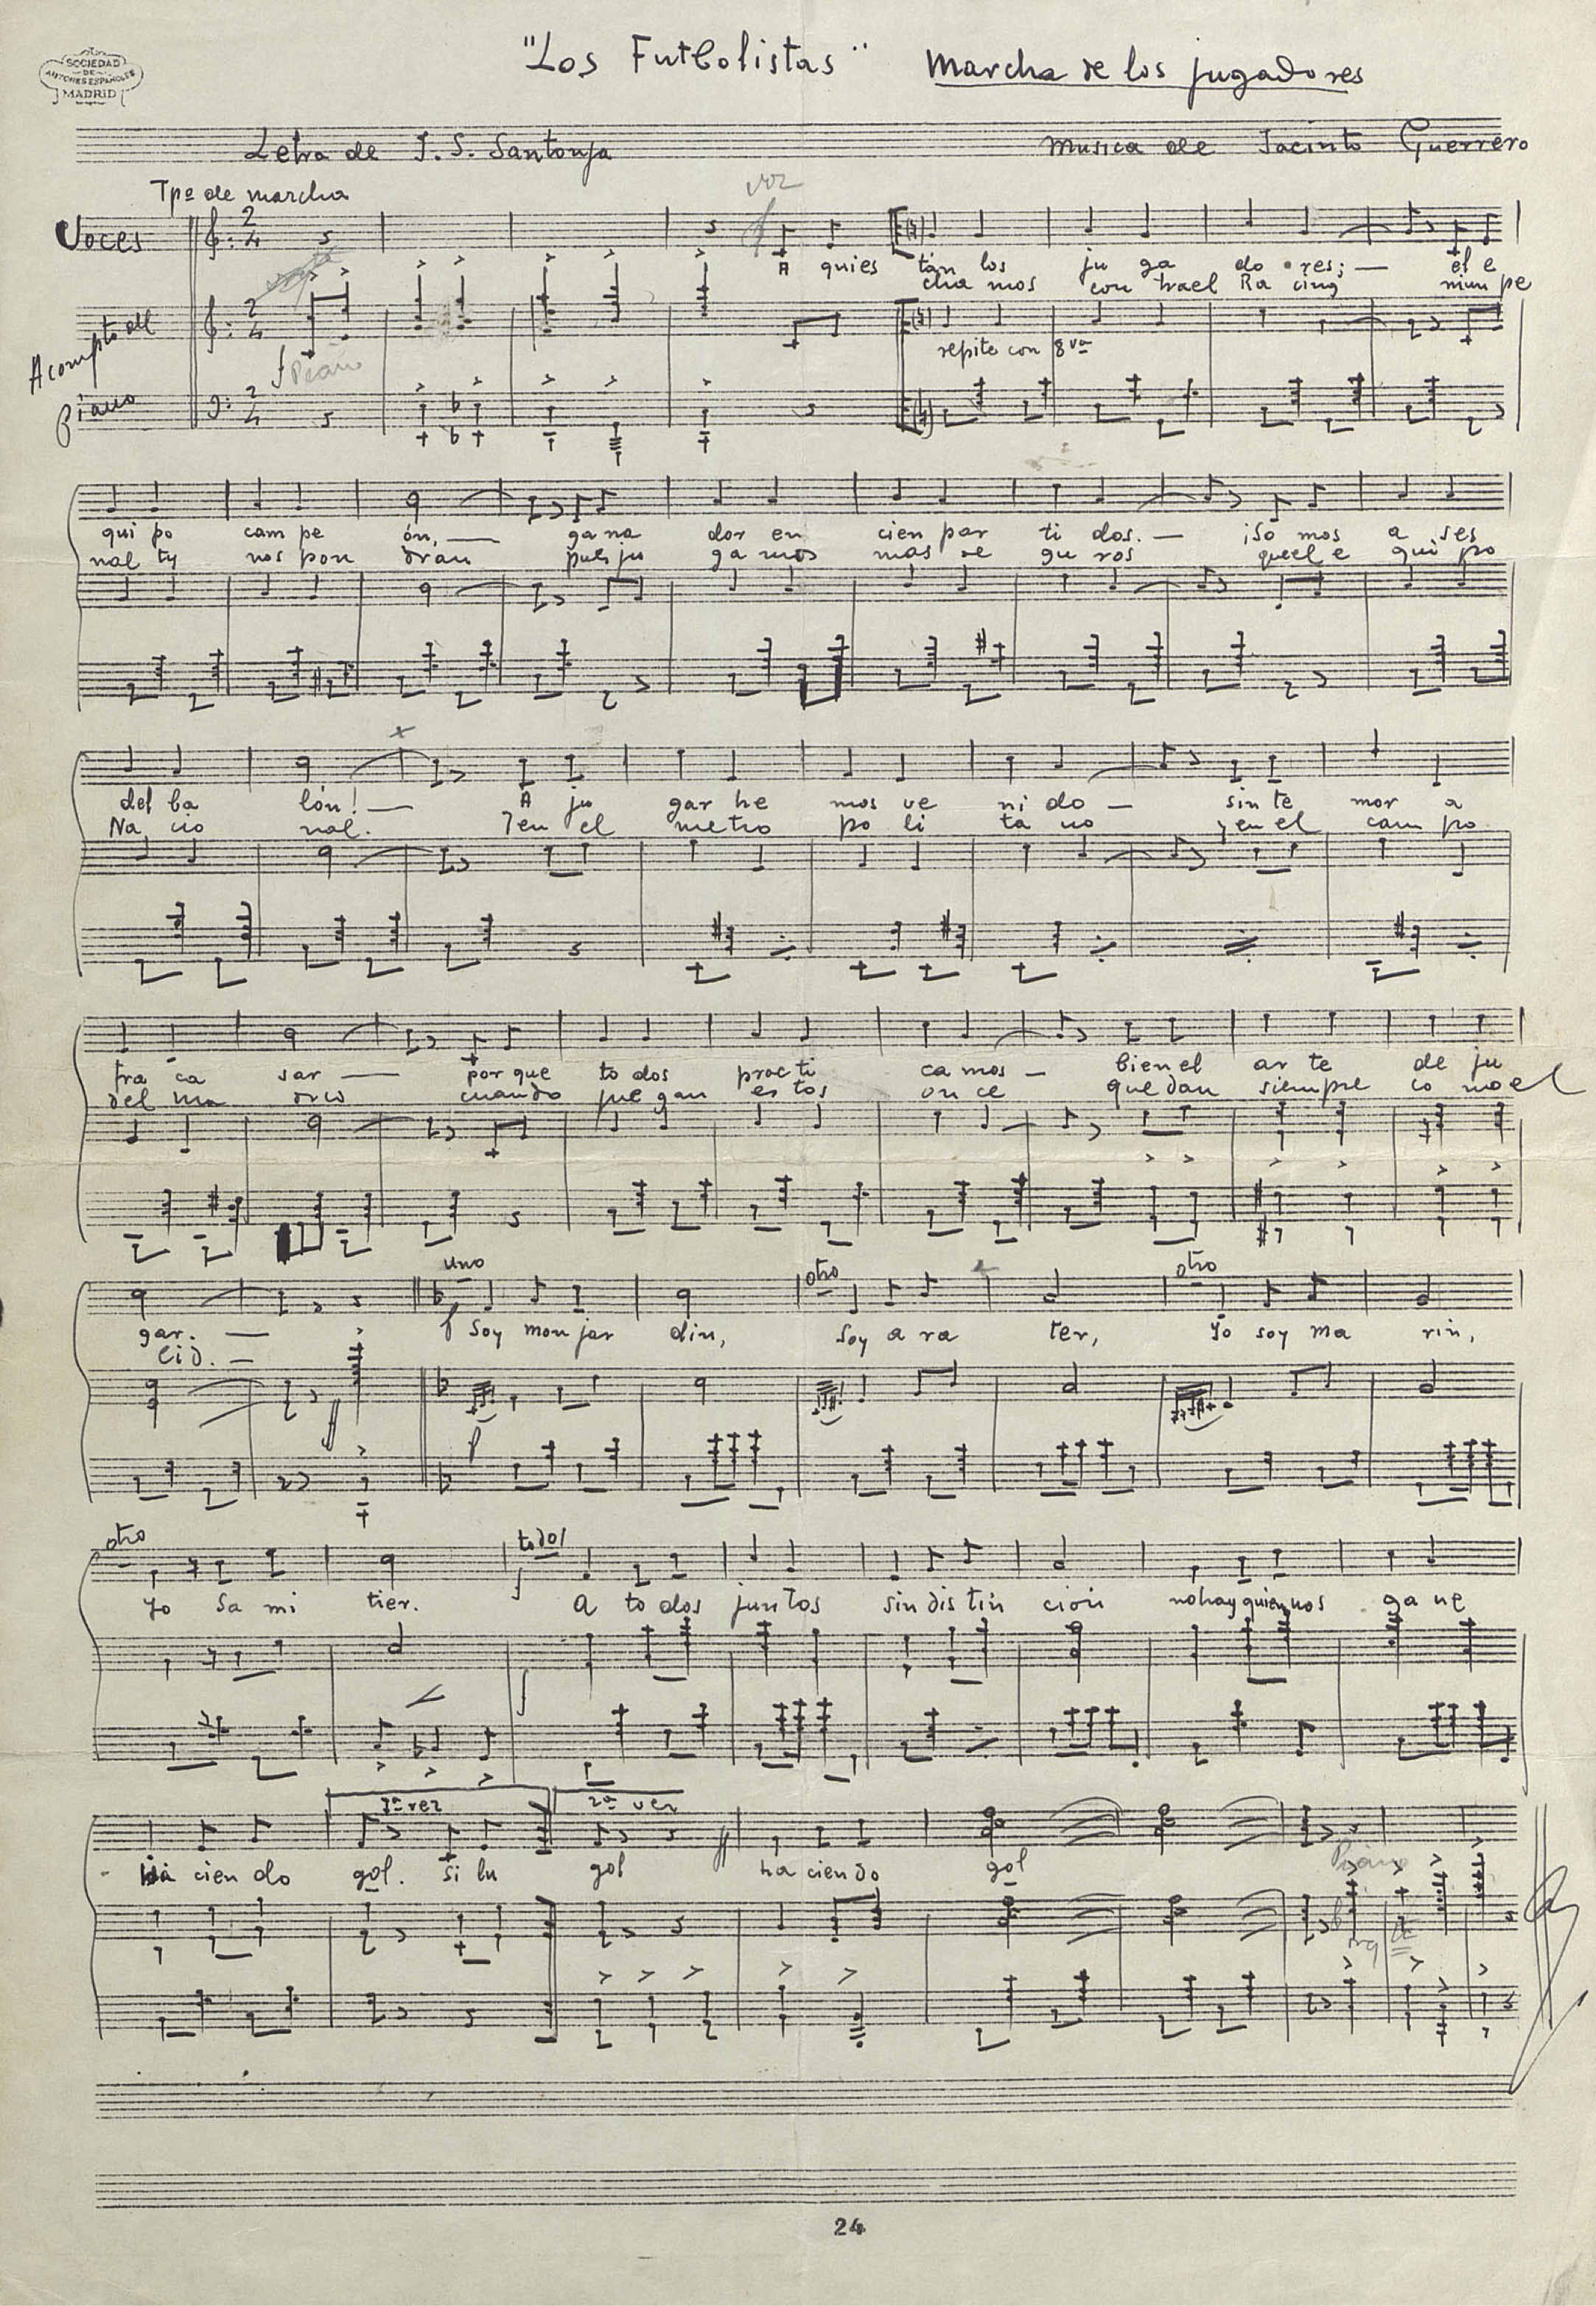 SOCIEDAD
DE
AUTORES ESPAÑOLES
MADRID
"Los Futbolistas" Marcha de los jugadores
Letra de J. S. Santonja Musica de Jacinto Guerrero
Tpº de marcha
voz
Voces
A quies tán los ju ga do res; — el e
cha mos con trael Ra cing niun pe
Acompto del Piano
f Piano
repite con 8va
qui po cam pe ón, — ga na dor en cien par ti dos. — ¡So mos a ses
nal ty nos pon dran pues ju ga mos mas se gu ros queel e qui po
del ba lón! — A ju gar he mos ve ni do — sin te mor a
Na cio nal. Yen el metro po li ta no y en el cam po
fra ca sar — por que to dos prac ti ca mos — bien el ar te de ju
del ma drid cuando jue gan es tos on ce quedan siempre co mo el
uno otro otro
gar. — f Soy mon jar din, soy a ra ter, Yo soy ma rin,
Cid. —
ff
p
otro todos
Yo Sa mi tier. f a to dos juntos sin dis tin ción no hay quien nos ga ne
f
1ª vez 2ª vez
ha cien do gol. si lu gol ha ciendo gol
Piano
24